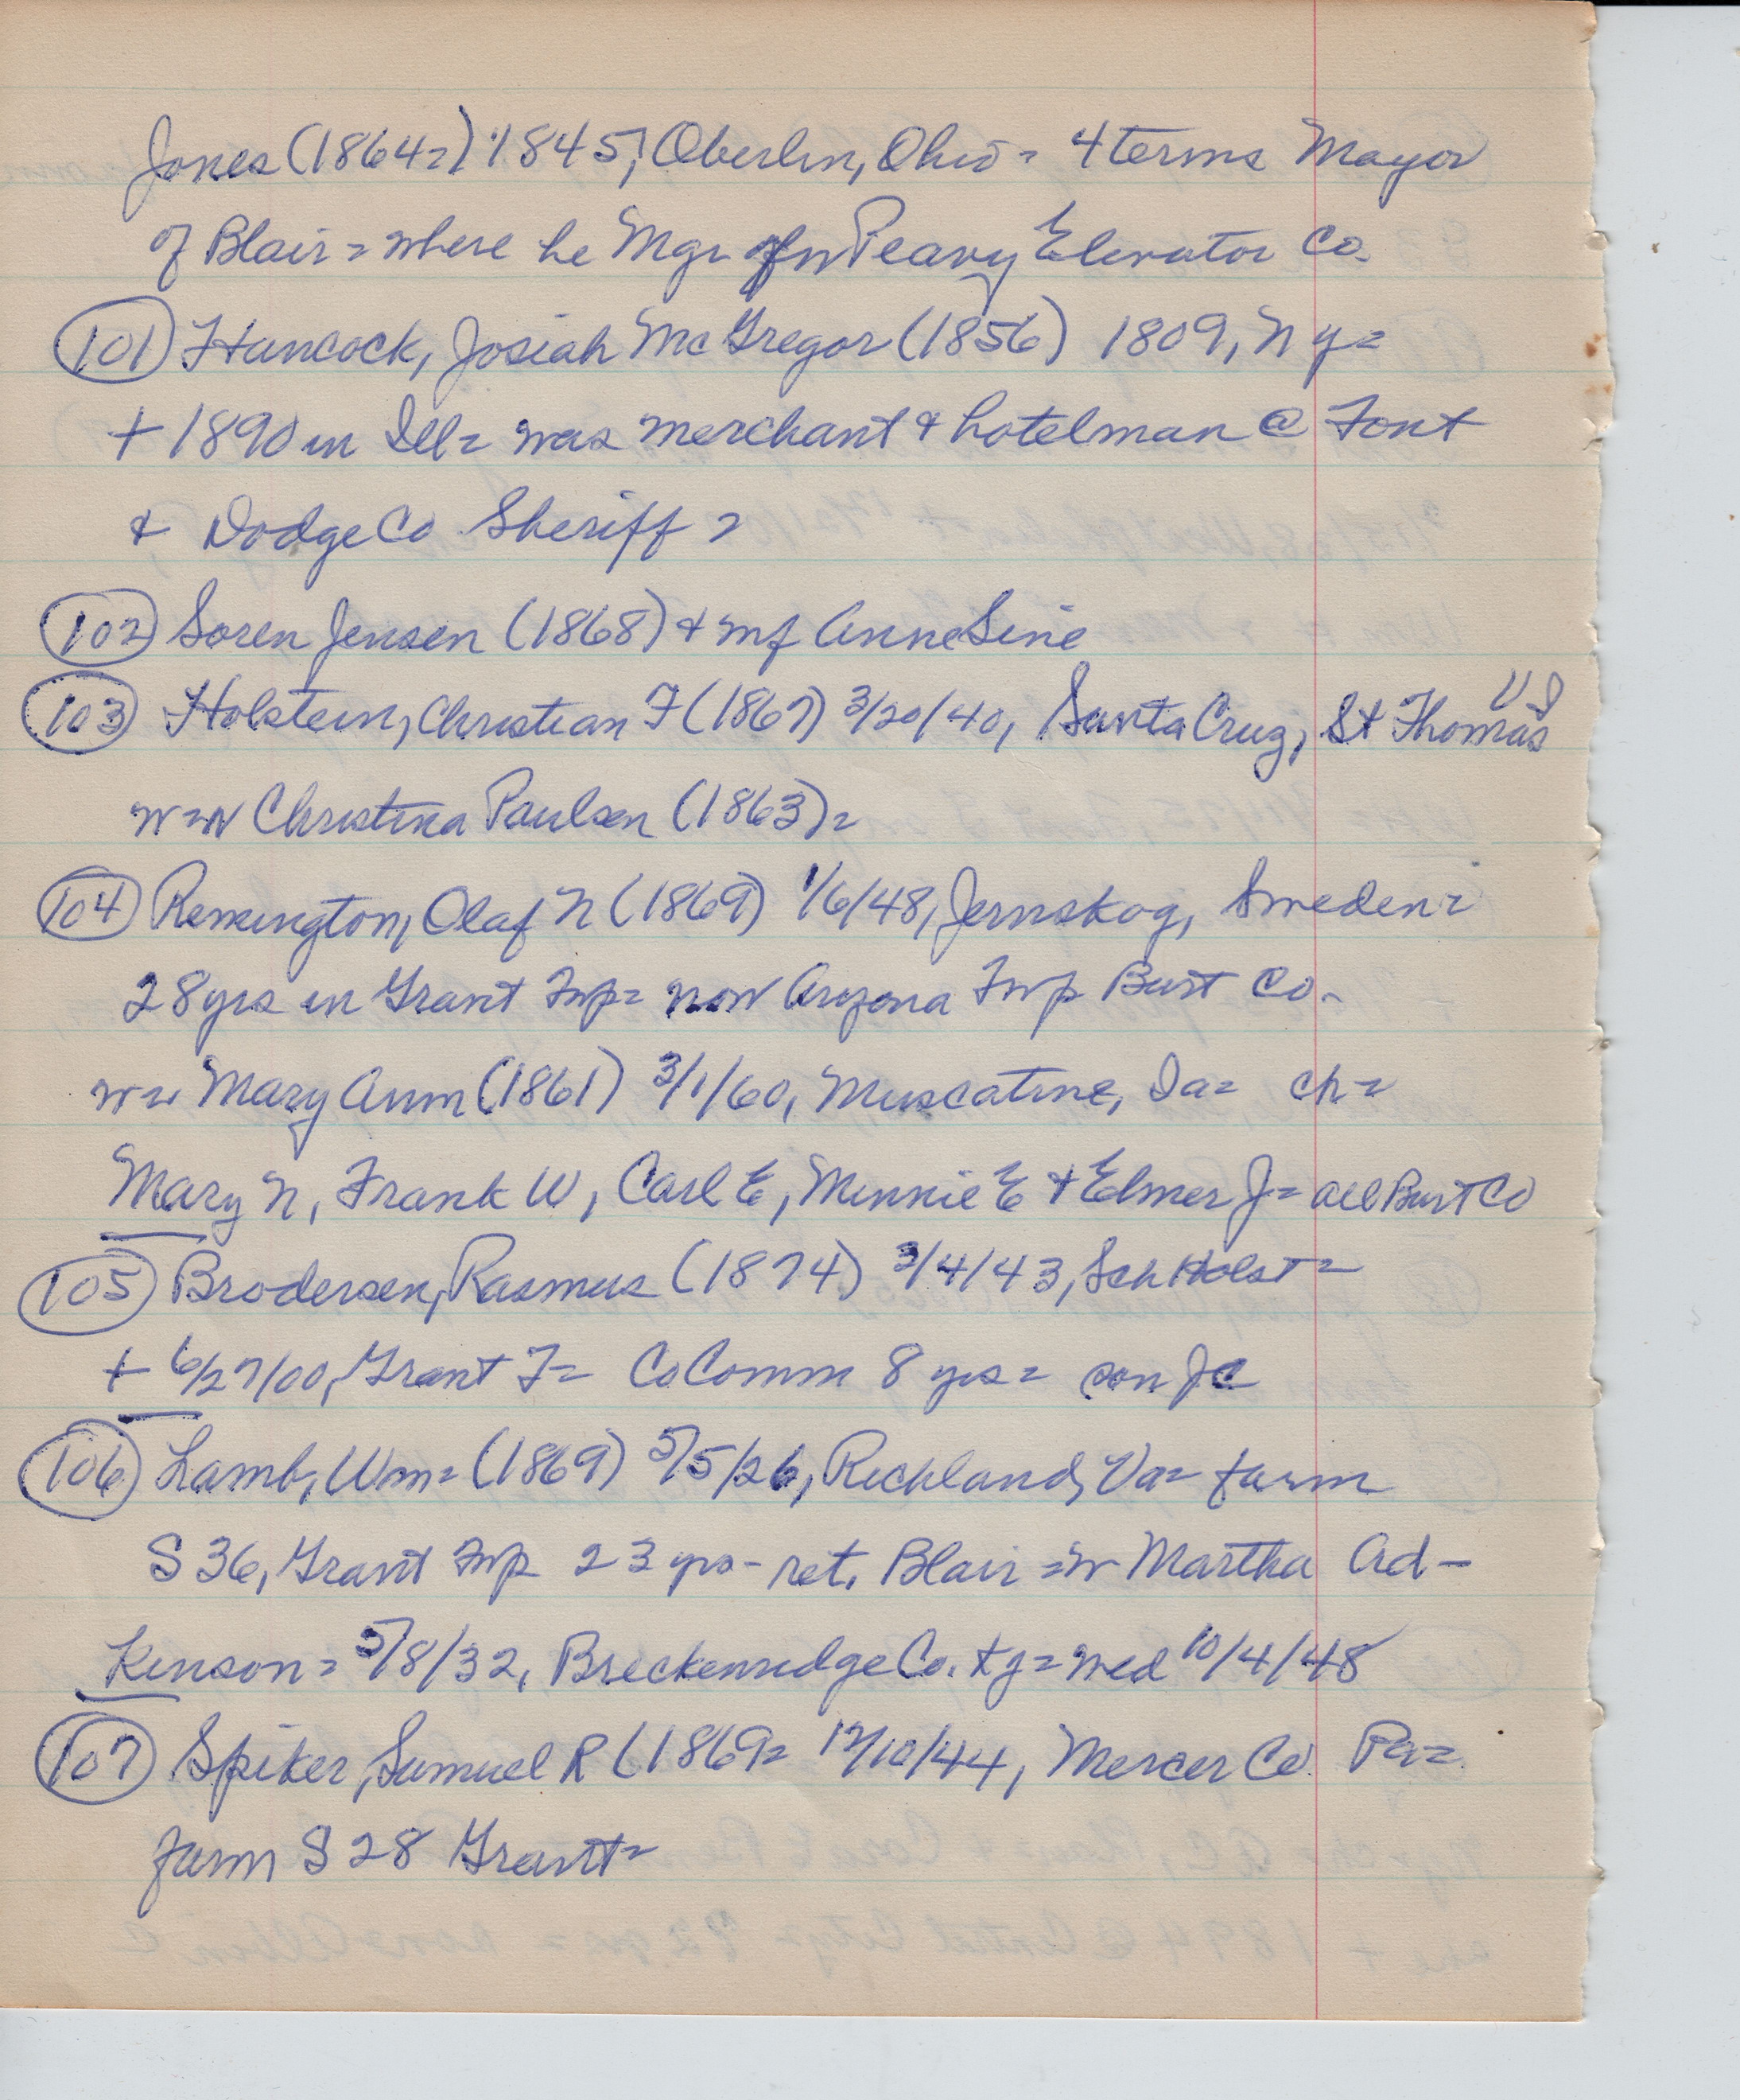 Jones (1864=) 1845, Oberlin, Ohio = 4 terms Mayor
of Blair = where he Mgr Peavy Elevator Co.
(101) Hancock, Josiah McGregor (1856) 1809, N Y =
+ 1890 in Ill = was merchant & hotelman @ Font
& Dodge Co Sheriff =
(102) Soren Jensen (1868) & mf Anne Sine
(103) Holstein, Christian F (1867) 3/20/40, Santa Cruz, St Thomas VI
w=w Christina Paulsen (1863) =
(104) Remington, Olaf N (1869) 1/6/48, Jernskog, Sweden =
28 yrs in Grant Twp = now Arizona Twp Burt Co.
w= Mary Ann (1861) 3/1/60, Muscatine, Ia = ch =
Mary N, Frank W, Carl E, Minnie E & Elmer J = all Burt Co
(105) Brodersen, Rasmus (1874) 3/4/43, Sch Holst =
+ 6/27/00, Grant T = Co Comm 8 yrs = son JC
(106) Lamb, Wm = (1869) 5/5/26, Richland, Va = farm
S 36, Grant Twp 23 yrs - ret. Blair = w Martha Ad-
kinson = 5/8/32, Breckenridge Co. Ky = wed 10/4/48
(107) Spiker, Samuel R (1869 = 12/10/44, Mercer Co Pa =
farm S 28 Grant =